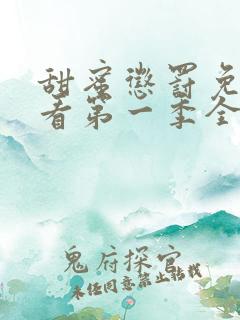 甜蜜懲罰免
看第一季全
鬼府探宮
未经同意禁止转载